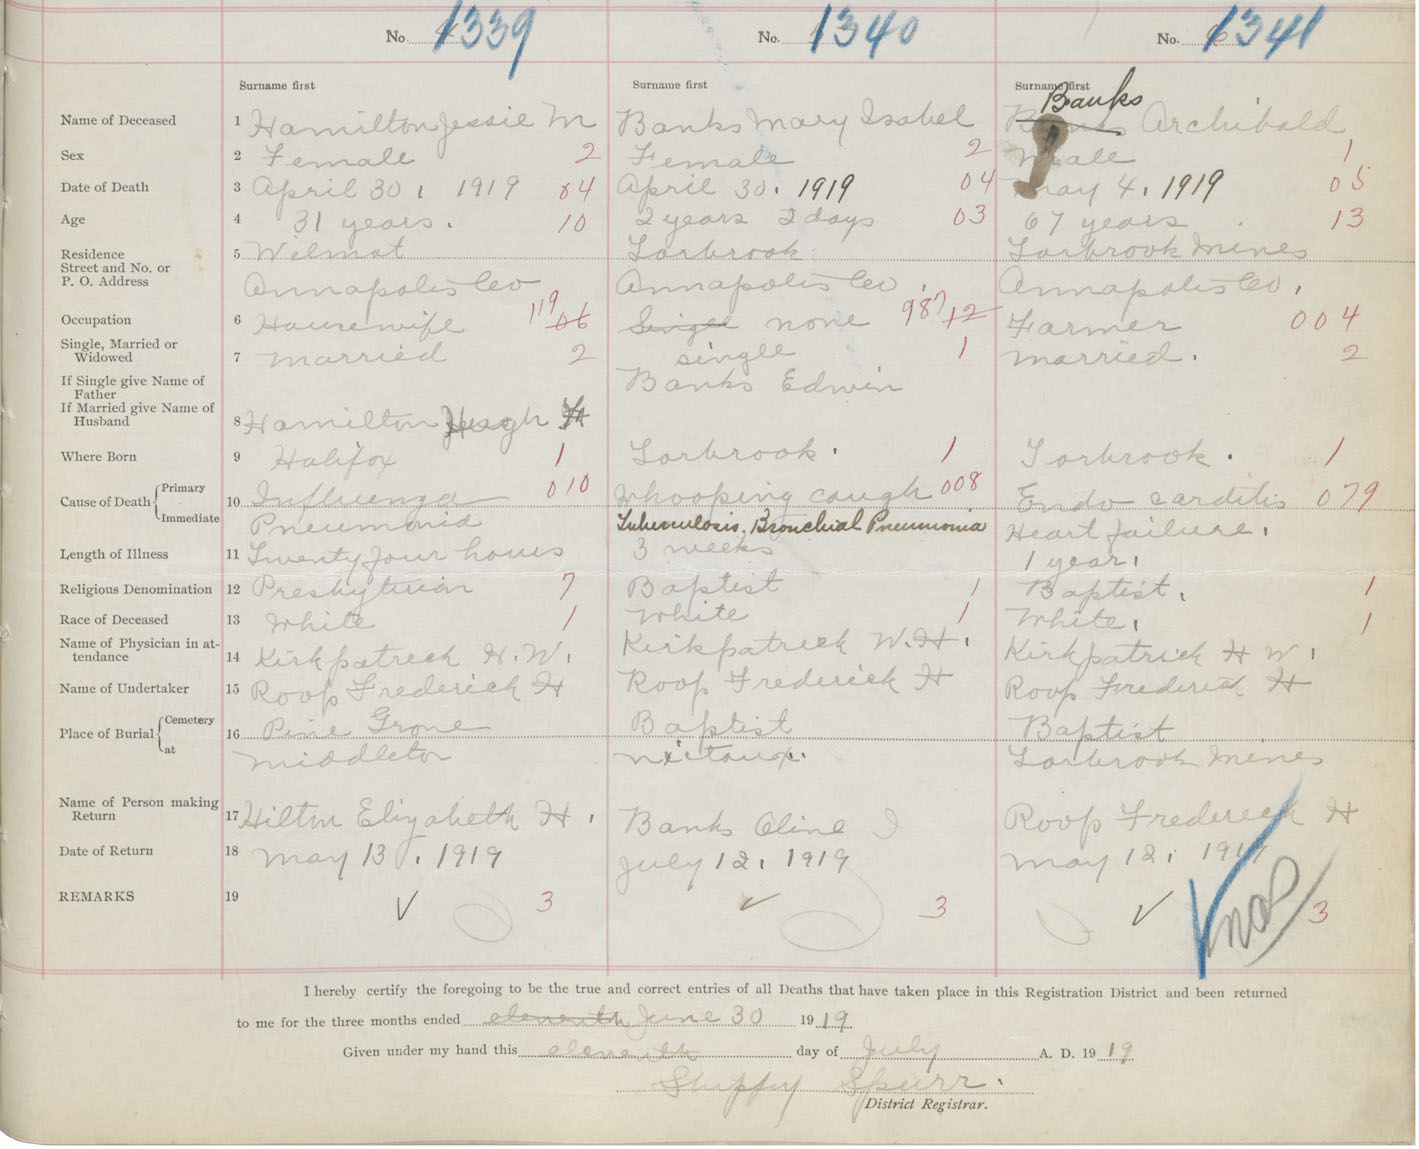 No. 1339 No. 1340 No. 1341
Surname first Surname first Surname first
Banks
Name of Deceased 1 Hamilton Jessie M Banks Mary Isabel Banks Archibald
Sex 2 Female 2 Female 2 Male 1
Date of Death 3 April 30, 1919 04 April 30, 1919 04 May 4, 1919 05
Age 4 31 years. 10 2 years 2 days 03 67 years 13
Residence 5 Wilmot Torbrook Torbrook Mines
Street and No. or
P. O. Address Annapolis Co Annapolis Co. Annapolis Co.
Occupation 6 Housewife 119 06 Single none 987 12 Farmer 004
Single, Married or
Widowed 7 married 2 single 1 married. 2
If Single give Name of
Father Banks Edwin
If Married give Name of
Husband 8 Hamilton Hugh
Where Born 9 Halifax 1 Torbrook. 1 Torbrook. 1
Cause of Death Primary 10 Influenza 010 Whooping cough 008 Endo carditis 079
Immediate Pneumonia Tuberculosis, Bronchial Pneumonia Heart failure.
Length of Illness 11 Twenty four hours 3 weeks 1 year.
Religious Denomination 12 Presbyterian 7 Baptist 1 Baptist. 1
Race of Deceased 13 White 1 White 1 White. 1
Name of Physician in at-
tendance 14 Kirkpatrick H. W. Kirkpatrick W. H. Kirkpatrick H W.
Name of Undertaker 15 Roop Frederick H Roop Frederick H Roop Frederick H
Place of Burial Cemetery 16 Pine Grove Baptist Baptist
at Middleton Nictaux. Torbrook Mines
Name of Person making
Return 17 Hilton Elizabeth H. Banks Oline Roop Frederick H
Date of Return 18 May 13, 1919 July 12, 1919 May 12, 1919
REMARKS 19 3 3 3
I hereby certify the foregoing to be the true and correct entries of all Deaths that have taken place in this Registration District and been returned
to me for the three months ended eleventh June 30 1919
Given under my hand this eleventh day of July A. D. 1919
Spurr.
District Registrar.